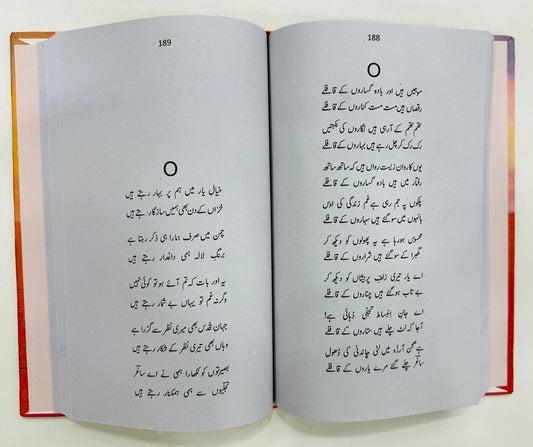 188
O
موجیں ہیں اور بادہ گساروں کے قافلے
رقصاں ہیں مست مست کناروں کے قافلے
تھم تھم کے آرہی ہیں نگاروں کی نکہتیں
رک رک کر چل رہے ہیں بہاروں کے قافلے
یوں کاروانِ زیست رواں ہیں کہ ساتھ ساتھ
رفتار میں ہیں بادہ گساروں کے قافلے
پلکوں پہ جم رہی ہے غم زندگی کی اوس
بانہوں میں سو گئے ہیں سہاروں کے قافلے
محسوس ہورہا ہے یہ پھولوں کو دیکھ کر
گھبرا کے سو گئے ہیں شراروں کے قافلے
اے یار تیری زلفِ پریشاں کو دیکھ کر
بے تاب ہوگئے ہیں چناروں کے قافلے
اے جانِ انبساط تجلی دہائی ہے!
آجا کہ لٹ چلے ہیں ستاروں کے قافلے
ہے صحنِ آرزو میں لٹی چاندنی کی دھول
ساغر چلے گئے مرے یاروں کے قافلے
189
O
خیالِ یار میں ہم پر بہار رہتے ہیں
خزاں کے دن بھی ہمیں سازگار رہتے ہیں
چمن میں صرف ہمارا ہی ذکر رہتا ہے
برنگِ لالہ ہمی داغدار رہتے ہیں
یہ اور بات کہ تم آئے ہو تو کوئی نہیں
وگرنہ غم تو یہاں بے شمار رہتے ہیں
جہانِ قدس بھی میری نظر سے گزرا ہے
وہاں بھی تیری نظر کے شکار رہتے ہیں
بصیرتوں کو نکھارا ہمی نے اے ساغر
تجلیوں سے ہمی ہمکنار رہتے ہیں